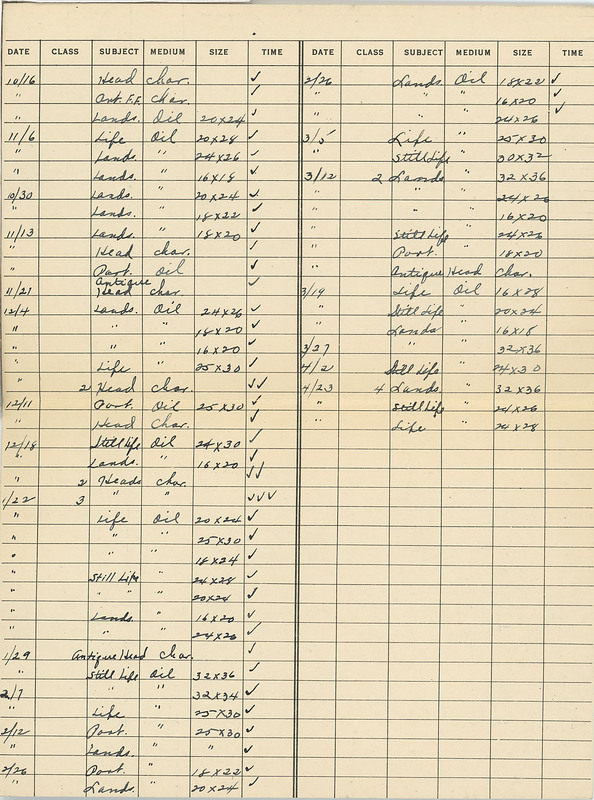 DATE CLASS SUBJECT MEDIUM SIZE TIME
10/16 Head char. ✓
" Ant. F.F. char. ✓
" Lands. Oil 20x24 ✓
11/6 Life Oil 20x28 ✓
" Lands. " 24x26 ✓
" Lands. " 16x18 ✓
10/30 Lands. " 20x24 ✓
" Lands. " 18x22 ✓
11/13 Lands. " 18x20 ✓
" Head char. ✓
" Port. Oil ✓
11/21 Antique Head char ✓
12/4 Lands. Oil 24x26 ✓
" " " 18x20 ✓
" " " 16x20 ✓
" Life " 25x30 ✓
" 2 Head char. ✓✓
12/11 Port. Oil 25x30 ✓
" Head char. ✓
12/18 Still Life Oil 24x30 ✓
" Lands. " 16x20 ✓
" 2 Heads char. ✓✓
1/22 3 " " ✓✓✓
" Life Oil 20x24 ✓
" " " 25x30 ✓
" " " 18x24 ✓
" Still Life " 24x28 ✓
" " " " 20x24 ✓
" Lands. " 16x20 ✓
" " " 24x26 ✓
1/29 Antique Head char. ✓
" Still Life Oil 32x36 ✓
2/7 " " 32x34 ✓
" Life " 25x30 ✓
2/12 Port. " 25x30 ✓
" Lands. " " ✓
2/26 Port. " 18x22 ✓
" Lands. " 20x24 ✓
DATE CLASS SUBJECT MEDIUM SIZE TIME
2/26 Lands. Oil 18x22 ✓
" " " 16x20 ✓
" " 24x26 ✓
3/5 Life " 25x30
" Still Life " 30x32
3/12 2 Lands " 32x36
" " 24x26
" " 16x20
" Still Life " 24x26
" Port. " 18x20
" Antique Head char.
3/19 Life Oil 16x28
" Still Life " 20x24
" Lands " 16x18
3/27 " 32x36
4/2 Still Life " 24x30
4/23 4 Lands. " 32x36
" Still Life " 24x26
" Life " 24x28